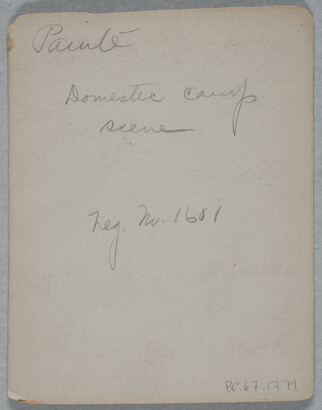 Paiute
Domestic camp
scene
Neg. No. 1681
BC.67.1771